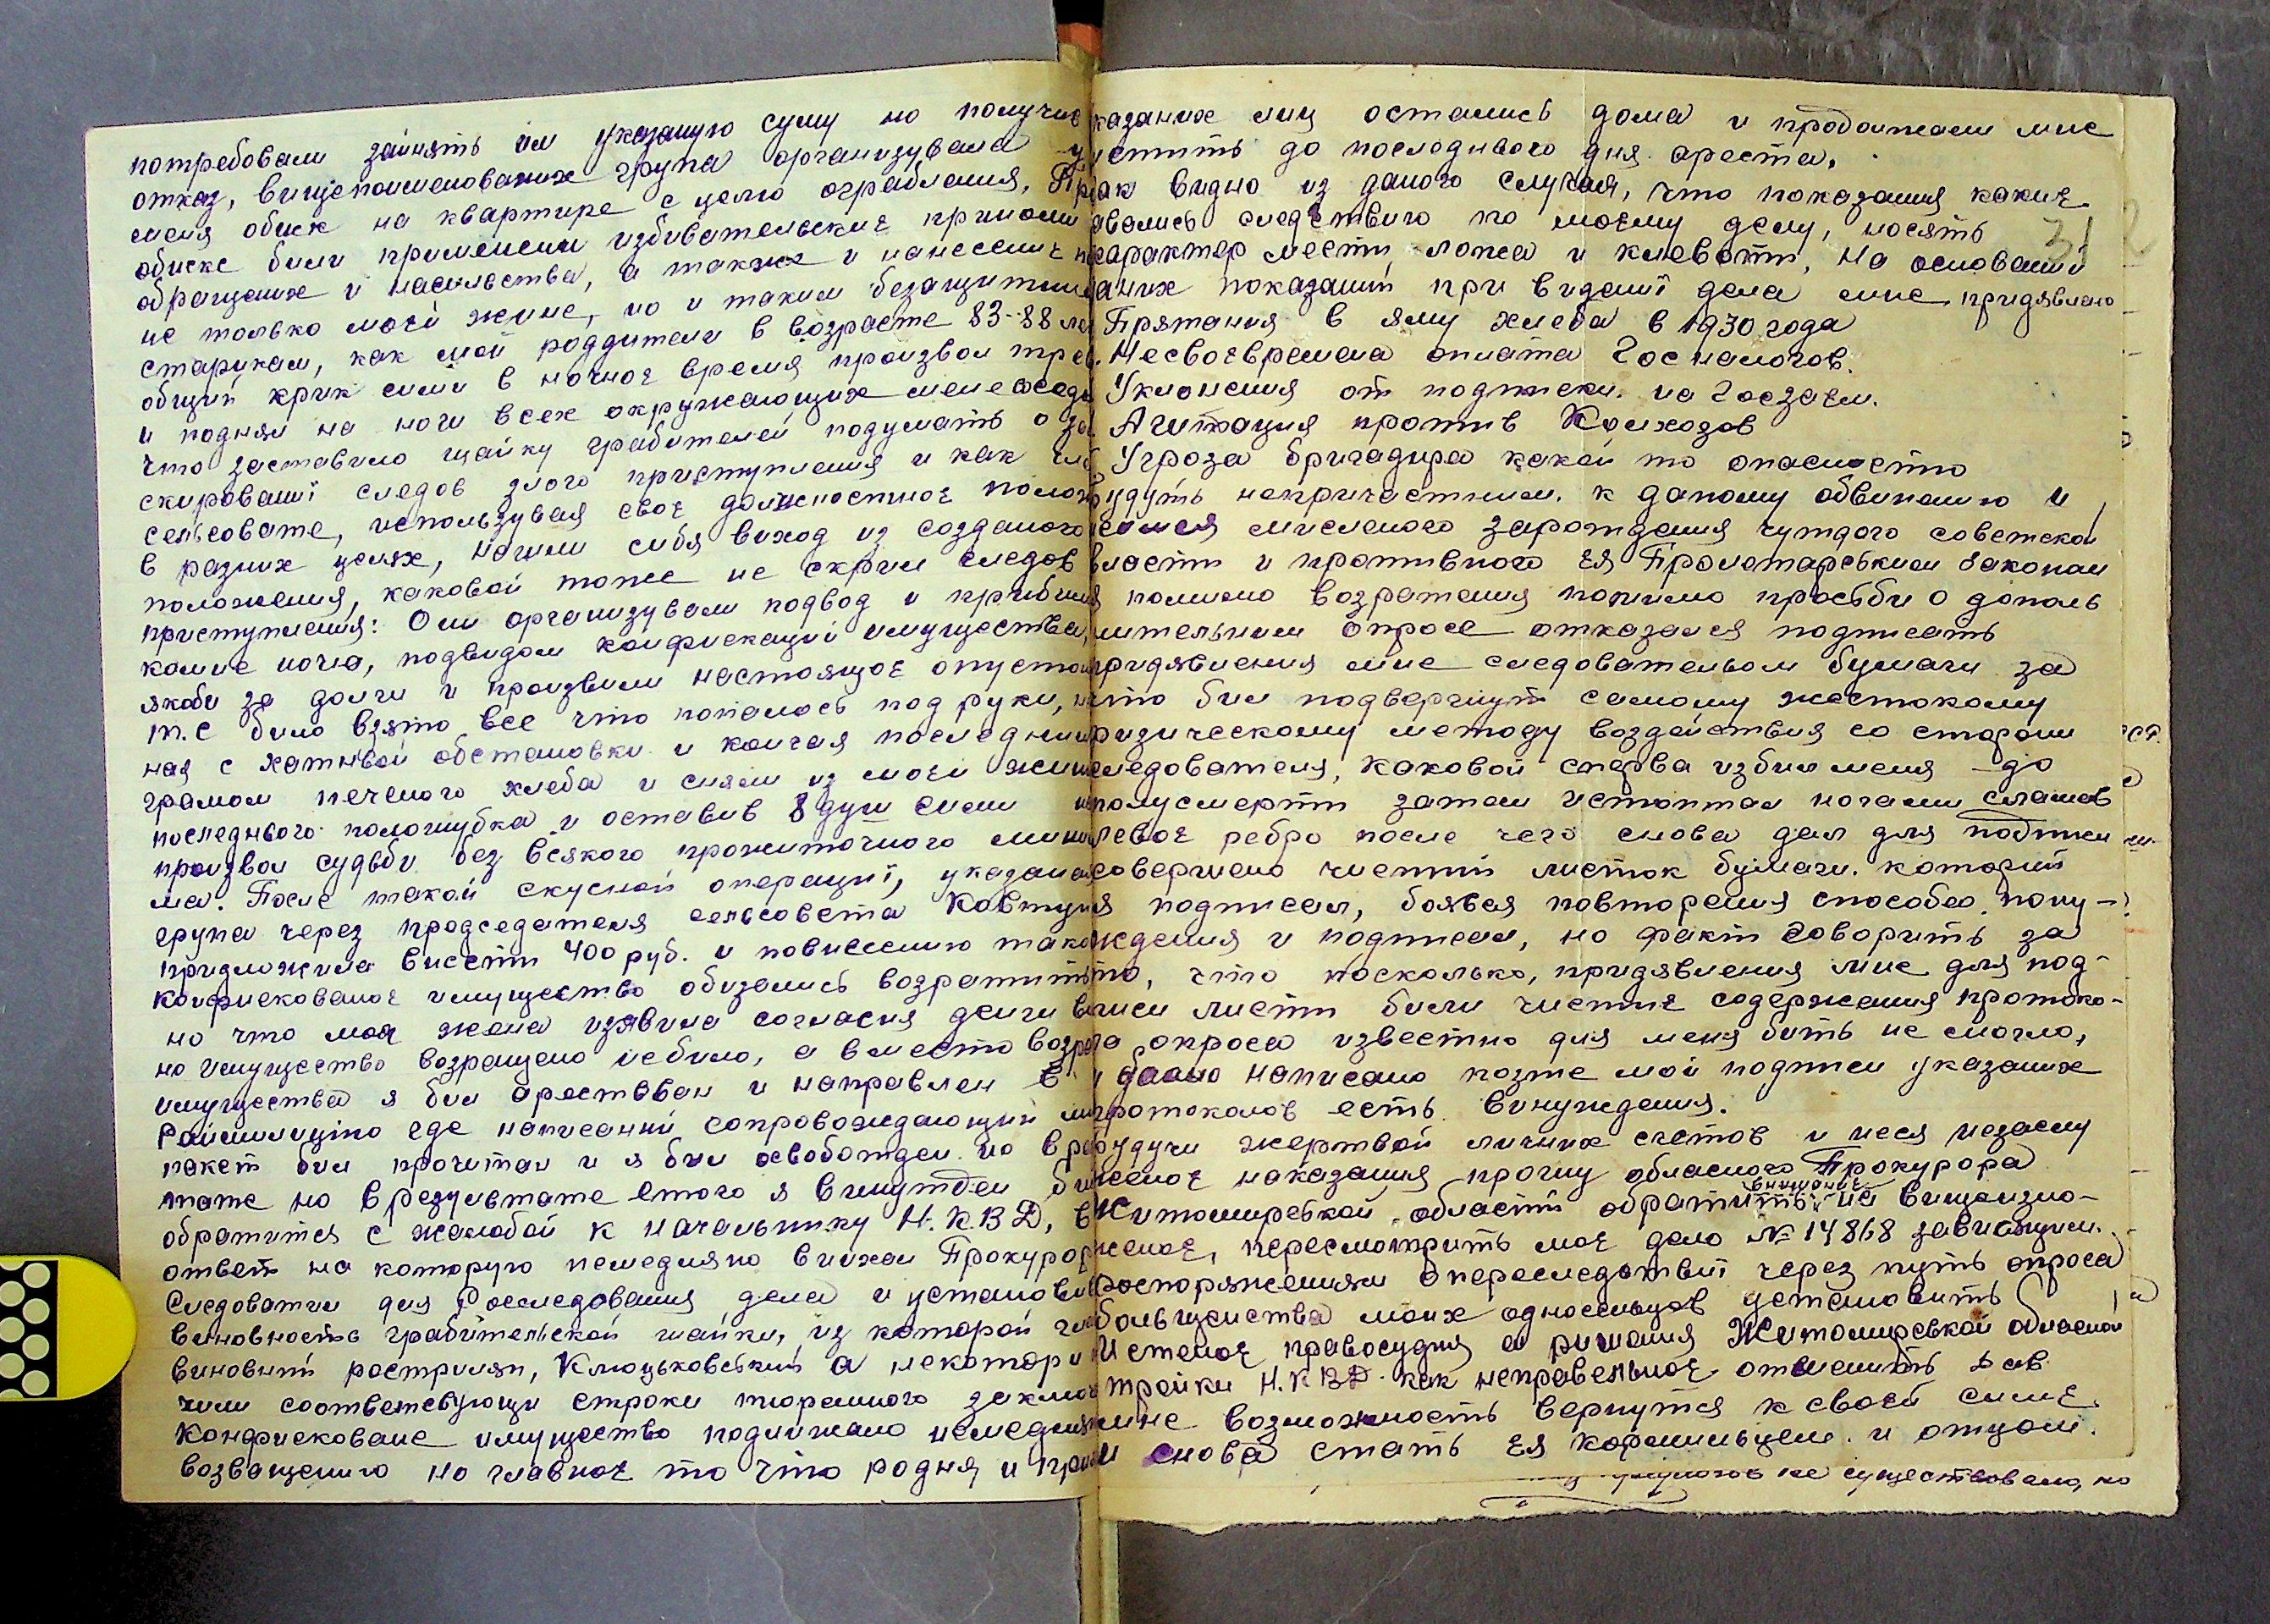 потребовали занять им указаную суму но получив
отказ, вищепоименованих група организувала у
меня обиск на квартире с целю ограбления, При
обиске били применени избивательские приломи
обращених и насильства, а также и нанесение
не только моей жине, но и таким безащитним
старикам, как мои роддители в возрасте 83-88 ле
общий крик сими в ночное время произвол трев
и поднял на ноги всех окружающих мене соседе
что заставило шайку грабителей подумать о за
скировании следов злого приступления и как
сельсовете, использувая свое должностное полож
в разних целях, нашли себя виход из созданого
положения, каковой тоже не скрил следов
приступления: Они организували подвод и прибили
комне ночю, подвидом конфискации имущества,
якоби за долги и произвили настоящое опустош
т.е било взято все что попалось под руки,
ная с хатньой обстановки и кончая последним
грамом печеного хлеба и сняли из моей жини
последнього полошубка и оставив 8 душ сими
произвол судьби без всякого прожиточного миниму
ма. После такой скусной операции, указана
група через продседателя сельсовета Ковтун
придложила внести 400 руб. и повнесению тако
конфискованое имущество обизались возратить
но что моя жена изявила согласия денги в
но имущество возращено небило, а вместо возра
имущества я бил арестован и направлен в
Раймилицию где написаний сопровождающий
пакет бил прочитан и я бил освобожден. но в
тоже но врезультате етого я винужден бил
обратится с жалобой к начальнику Н.К.В.Д, в
ответ на которую немедляно виихал Прокурор
Следователи для Расследования дела и установил
виновность грабительской шайки, из которой
виновний растрилян, Клюцьковський а некотори
чили соответсвующи строки тюремного заклю
Конфисковане имущество подлижало немедлян
возващению но главное то что родня и при
казаних лиц остались дома и продолжали мне
мстить до последнього дня ареста.
ак видно из даного случая, что показания какие
авались следствию по моему делу, носять
характер мести ложа и клевети, на основании
аних показаний при видении дела мне придявлено
Прятания в яму хлеба в 1930 года
Несвоевремена оплата Госналогов.
Уклонения от подписки на Госзаем.
Агитация против Колхозов
Угроза бригадира какой то опасносто
удуть непричастним к даному обвинению и
мисленого зарождения чуждого советской
власти и противного ея Пролетарським законам
я помимо возратения помимо просьби о дополь
нительним опросе отказался подписать
придявления мне следователем бумаги за
что бил подвергнут самому жестокому
физическому методу воздействия со сторони
следователя, каковой сперва избил меня до
полусмерти затем истоптал ногами сламав
левое ребро после чего снова дал для подписи
совершено чистий листок бумаги. который
я подписал, боявся повторения способов пону-
ждения и подписал, но факт говорить за
то, что посколько, придявления мне для под-
писи листи били чистие содержания протоко-
ла опроса известно для меня бить не могло,
и давно написано позже мой подписи указаних
протоколов есть винуждения.
будучи жертвой личних счетов и неся незаслу
женое наказания прошу обласного Прокурора
внимание
Житомирськой области обратить на вищеизло-
женое, пересмотрить мое дело № 14868 завившим
распоряжениями опереследствии через путь опроса
большенства моих односельцев установить
Истеное правосудия а ришения Житомирськой обласной
тройки Н.К.В.Д. как неправельное отменить дав
мне возможность вернутся к своей симе
и снова стать ея кормильцем и отцом.
не существовало, но
31